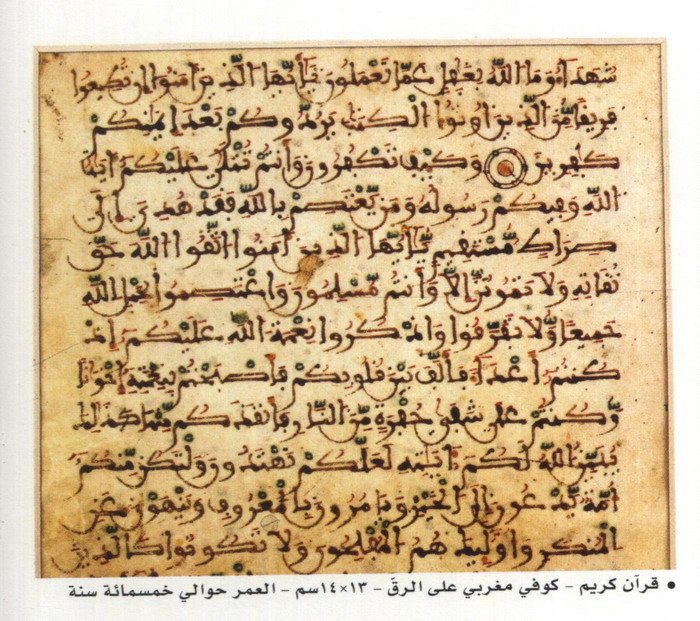 شهداء وما الله بغفل عما تعملون يأيها الذين ءامنوا إن تطيعوا
فريقا من الذين أوتوا الكتب يردوكم بعد إيمنكم
كفرين وكيف تكفرون وأنتم تتلى عليكم ءايت
الله وفيكم رسوله ومن يعتصم بالله فقد هدي إلى
صراط مستقيم يأيها الذين ءامنوا اتقوا الله حق
تقاته ولا تموتن إلا وأنتم مسلمون واعتصموا بحبل الله
جميعا ولا تفرقوا واذكروا نعمة الله عليكم إذ
كنتم أعداء فألف بين قلوبكم فأصبحتم بنعمته إخوانا
وكنتم على شفا حفرة من النار فأنقذكم منها كذلك
يبين الله لكم ءايته لعلكم تهتدون ولتكن منكم
أمة يدعون إلى الخير ويأمرون بالمعروف وينهون عن
المنكر وأوليك هم المفلحون ولا تكونوا كالذين
• قرآن كريم - كوفي مغربي على الرقّ - ١٣×١٤سم - العمر حوالي خمسمائة سنة